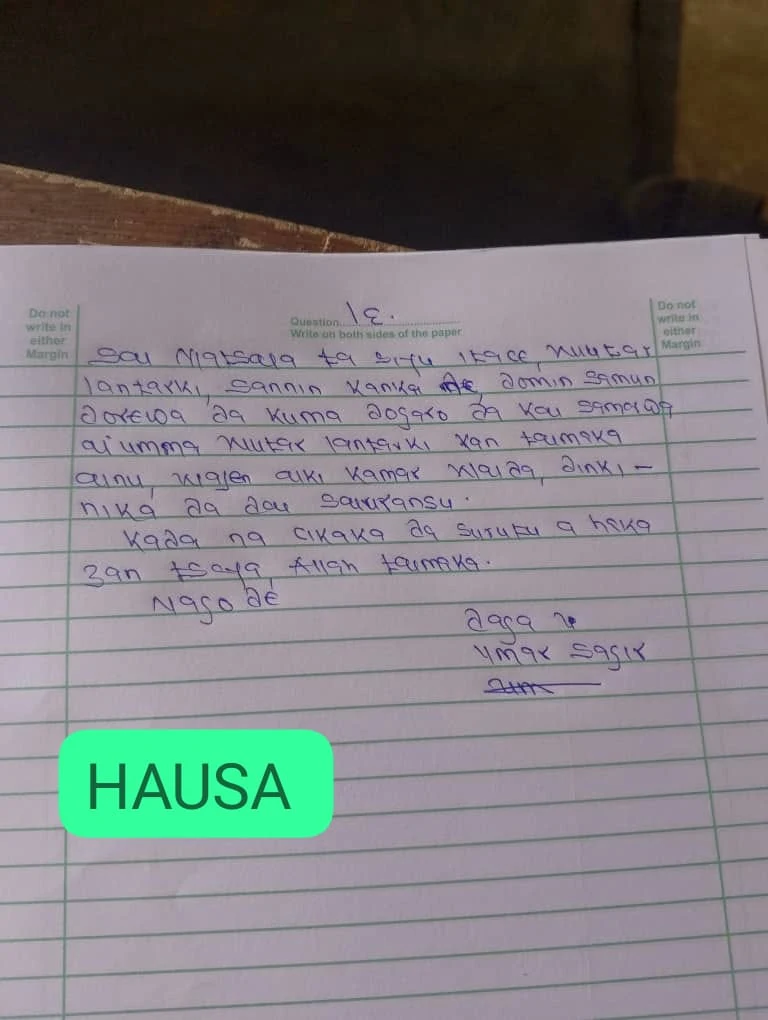 Do not
write in
either
Margin
Question 1E.
Write on both sides of the paper
Do not
write in
either
Margin
Sai Matsaya ta biyu itace, wutar
lantarki, sannin kanka ne, domin samun
dorewa da kuma dogaro da kai samarwa
al'umma wutar lantarki kan taimaka
ainu, wajen aiki kamar walda, dinki -
nika da dai sauransu.
Kada na cikaka da surutu a heka
zan tsaya, Allah taimaka.
Nago de
daga
Umar Sagir
HAUSA